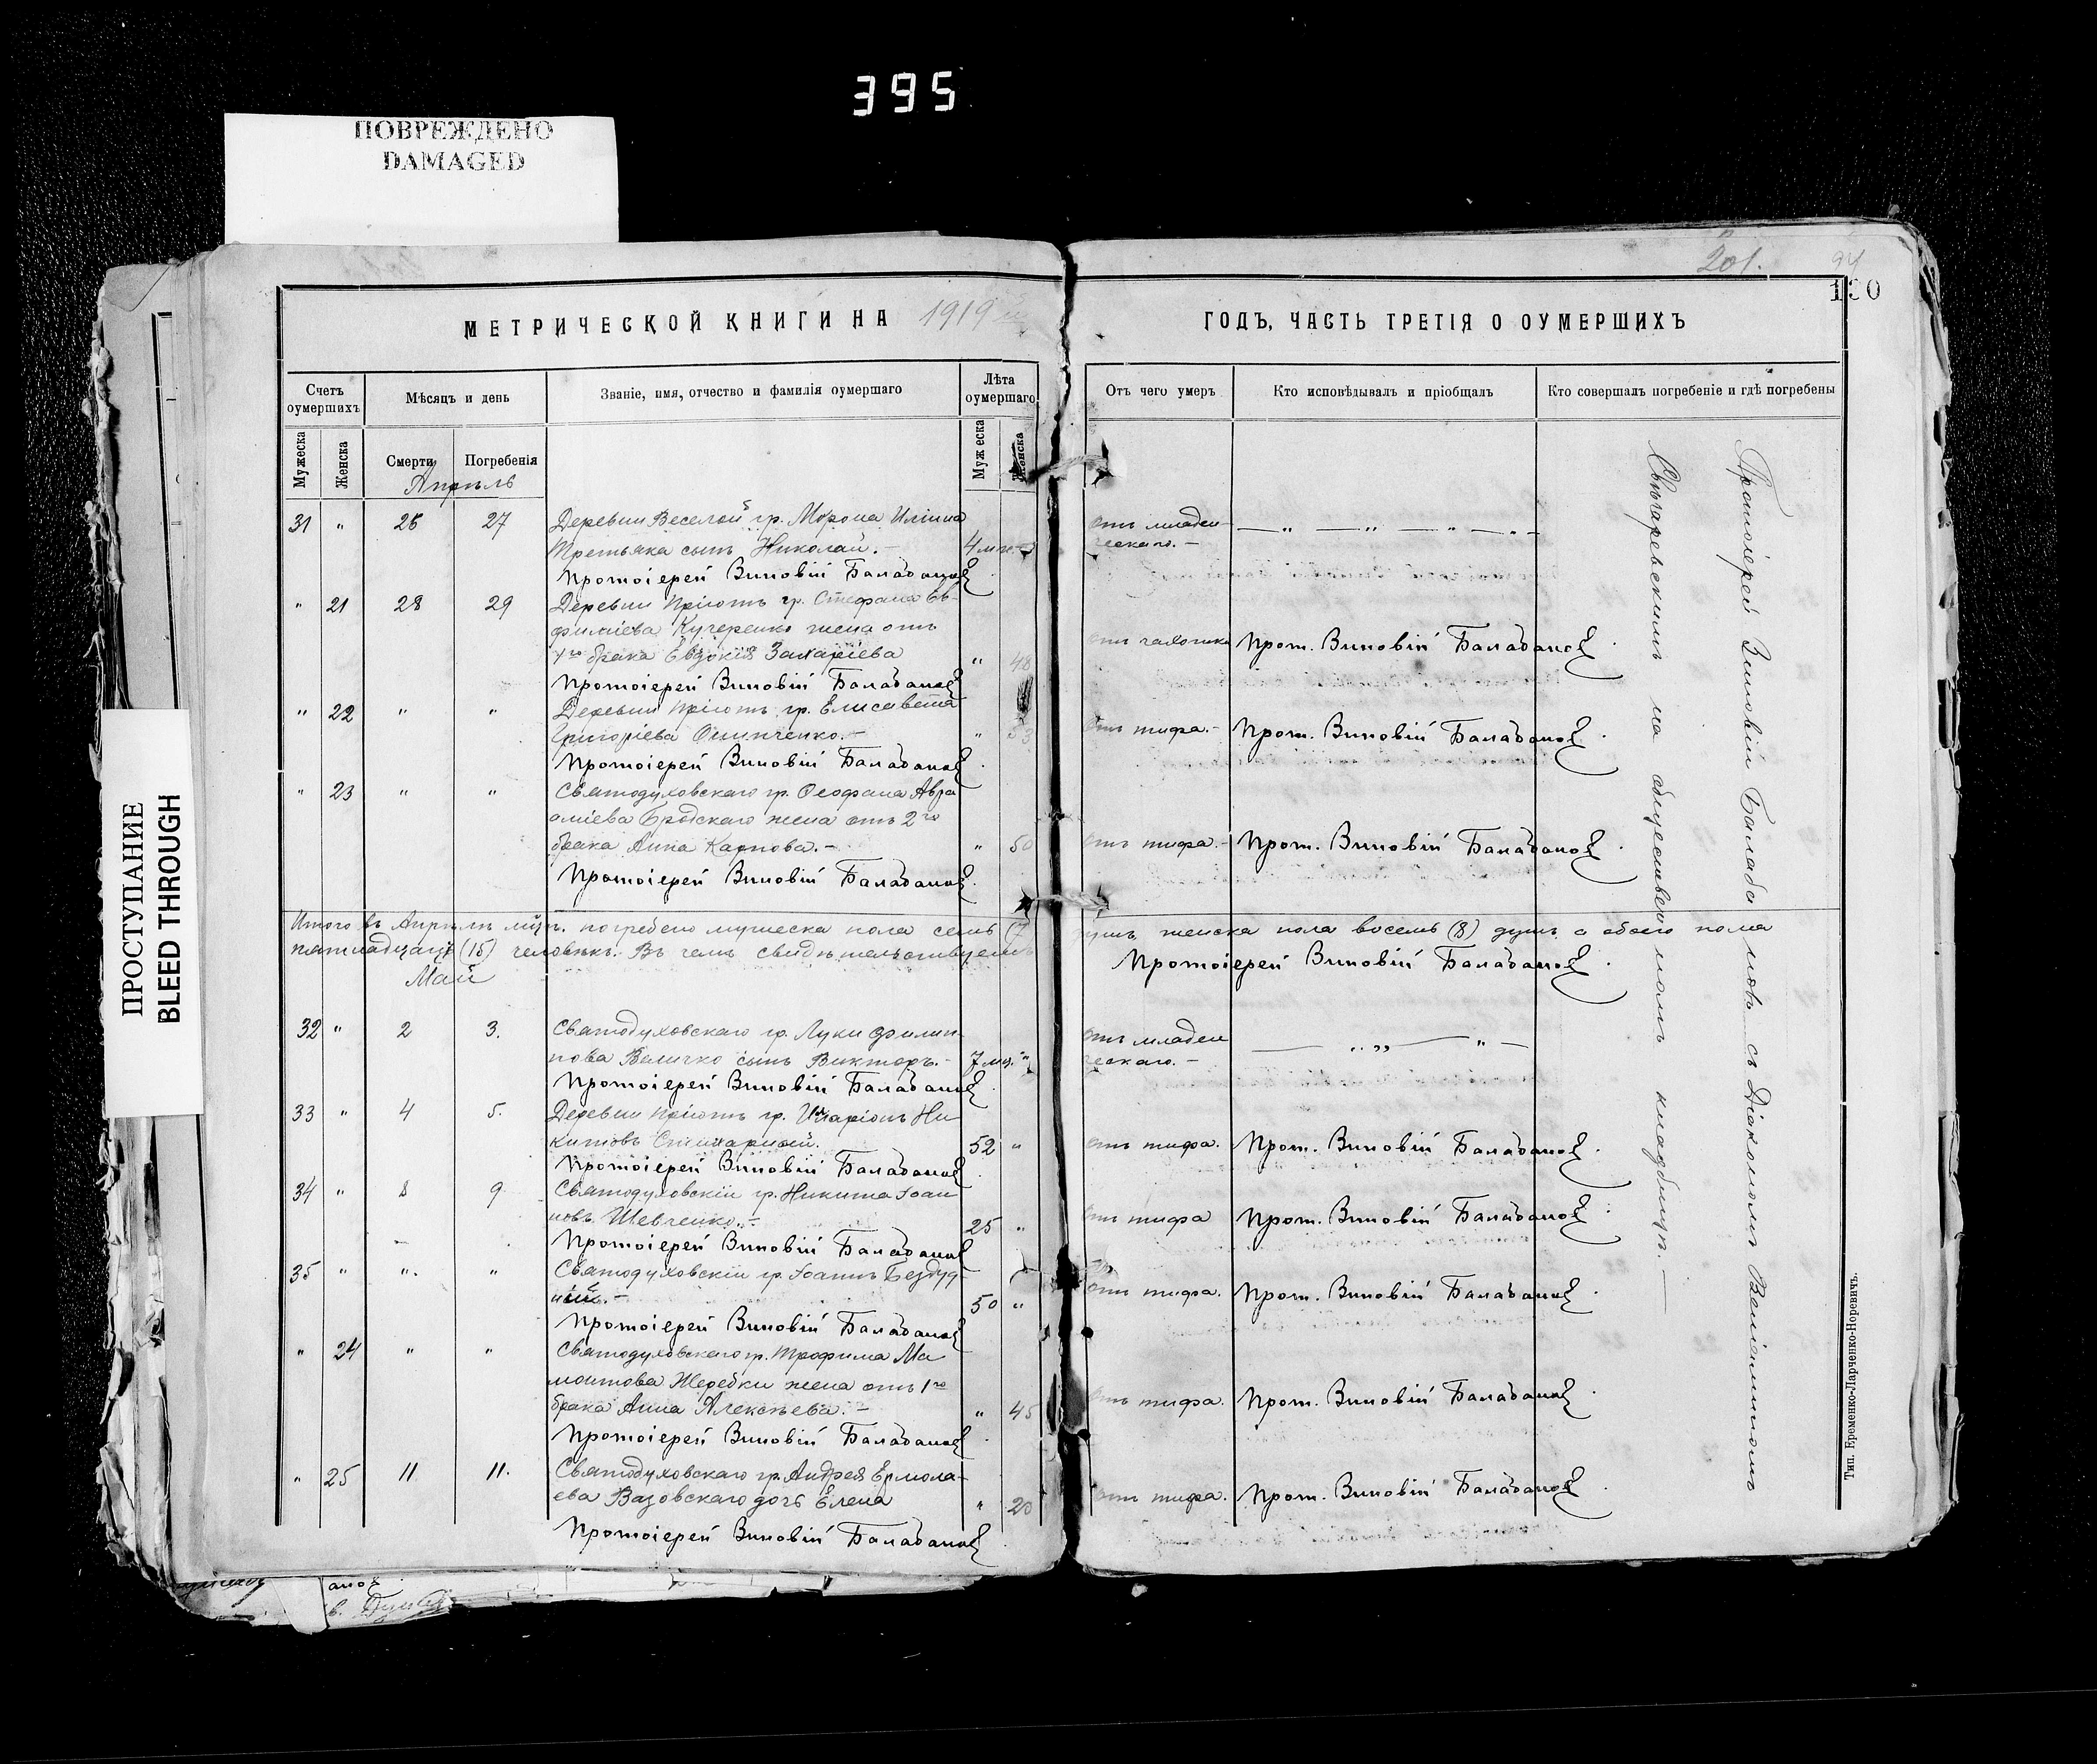 395
ПОВРЕЖДЕНО
DAMAGED
ПРОСТУПАНИЕ
BLEED THROUGH
201.
94
130
МЕТРИЧЕСКОЙ КНИГИ НА 1919 ГОДЪ, ЧАСТЬ ТРЕТІЯ О ОУМЕРШИХЪ
Счетъ оумершихъ
Мѣсяцъ и день
Званіе, имя, отчество и фамилія оумершаго
Лѣта оумершаго
Отъ чего умеръ
Кто исповѣдывалъ и пріобщалъ
Кто совершалъ погребеніе и гдѣ погребены
Мужеска
Женска
Смерти
Погребенія
Мужеска
Женска
Апрѣль
31 " 26 27 Деревни Веселой гр. Мѵрона Иліина
Третьяка сынъ Николай.- 4 мц. отъ младенческаго.-
Протоіерей Зиновій Балабановъ
" 21 28 29 Деревни Пріютъ гр. Стефана Ев-
фиміева Кучеренко жена отъ
1го брака Евдокія Захаріева " 48 отъ чахотки Прот. Зиновій Балабановъ
Протоіерей Зиновій Балабановъ
" 22 " " Деревни Пріютъ гр. Елисавета
Григоріева Онипченко.- " отъ тифа.- Прот. Зиновій Балабановъ
Протоіерей Зиновій Балабановъ
" 23 " " Святодуховскаго гр. Ѳеофана Авра
аміева Бродскаго жена отъ 2го
брака Анна Карпова.- " 50 отъ тифа.- Прот. Зиновій Балабановъ
Протоіерей Зиновій Балабановъ
Итого въ Апрѣлѣ мѣц. погребено мужеска пола семь (7 душъ женска пола восемь (8) душъ а обоего пола
пятнадцать (15) человѣкъ. Въ чемъ свидѣтельствуемъ Протоіерей Зиновій Балабановъ
Май
32 " 2 3. Святодуховскаго гр. Луки Филип-
пова Величко сынъ Викторъ.- 7 мц. " отъ младенческаго.-
Протоіерей Зиновій Балабановъ
33 " 4 5. Деревни Пріютъ гр. Иларіонъ Ни-
китовъ 52 " отъ тифа. Прот. Зиновій Балабановъ
Протоіерей Зиновій Балабановъ
34 " 8 9 Святодуховскій гр. Никита Іоан
новъ Шевченко.- 25 " отъ тифа Прот. Зиновій Балабановъ
Протоіерей Зиновій Балабановъ
35 " " " Святодуховскій гр. Іоаннъ
50 " отъ тифа. Прот. Зиновій Балабановъ
Протоіерей Зиновій Балабановъ
" 24 " " Святодуховскаго гр. Трофима Ма
монтова Жеребки жена отъ 1го
брака Анна Алексѣева.- " 45 отъ тифа. Прот. Зиновій Балабановъ
Протоіерей Зиновій Балабановъ
" 25 11 11. Святодуховскаго гр. Андрея Ермола-
ева Вазовскаго дочь Елена " 20 отъ тифа. Прот. Зиновій Балабановъ
Протоіерей Зиновій Балабановъ
Протоіерей Зиновій Балабановъ съ Діакономъ
на общественномъ кладбищѣ.-
Тип. Еременко-Ларченко-Норевичъ.